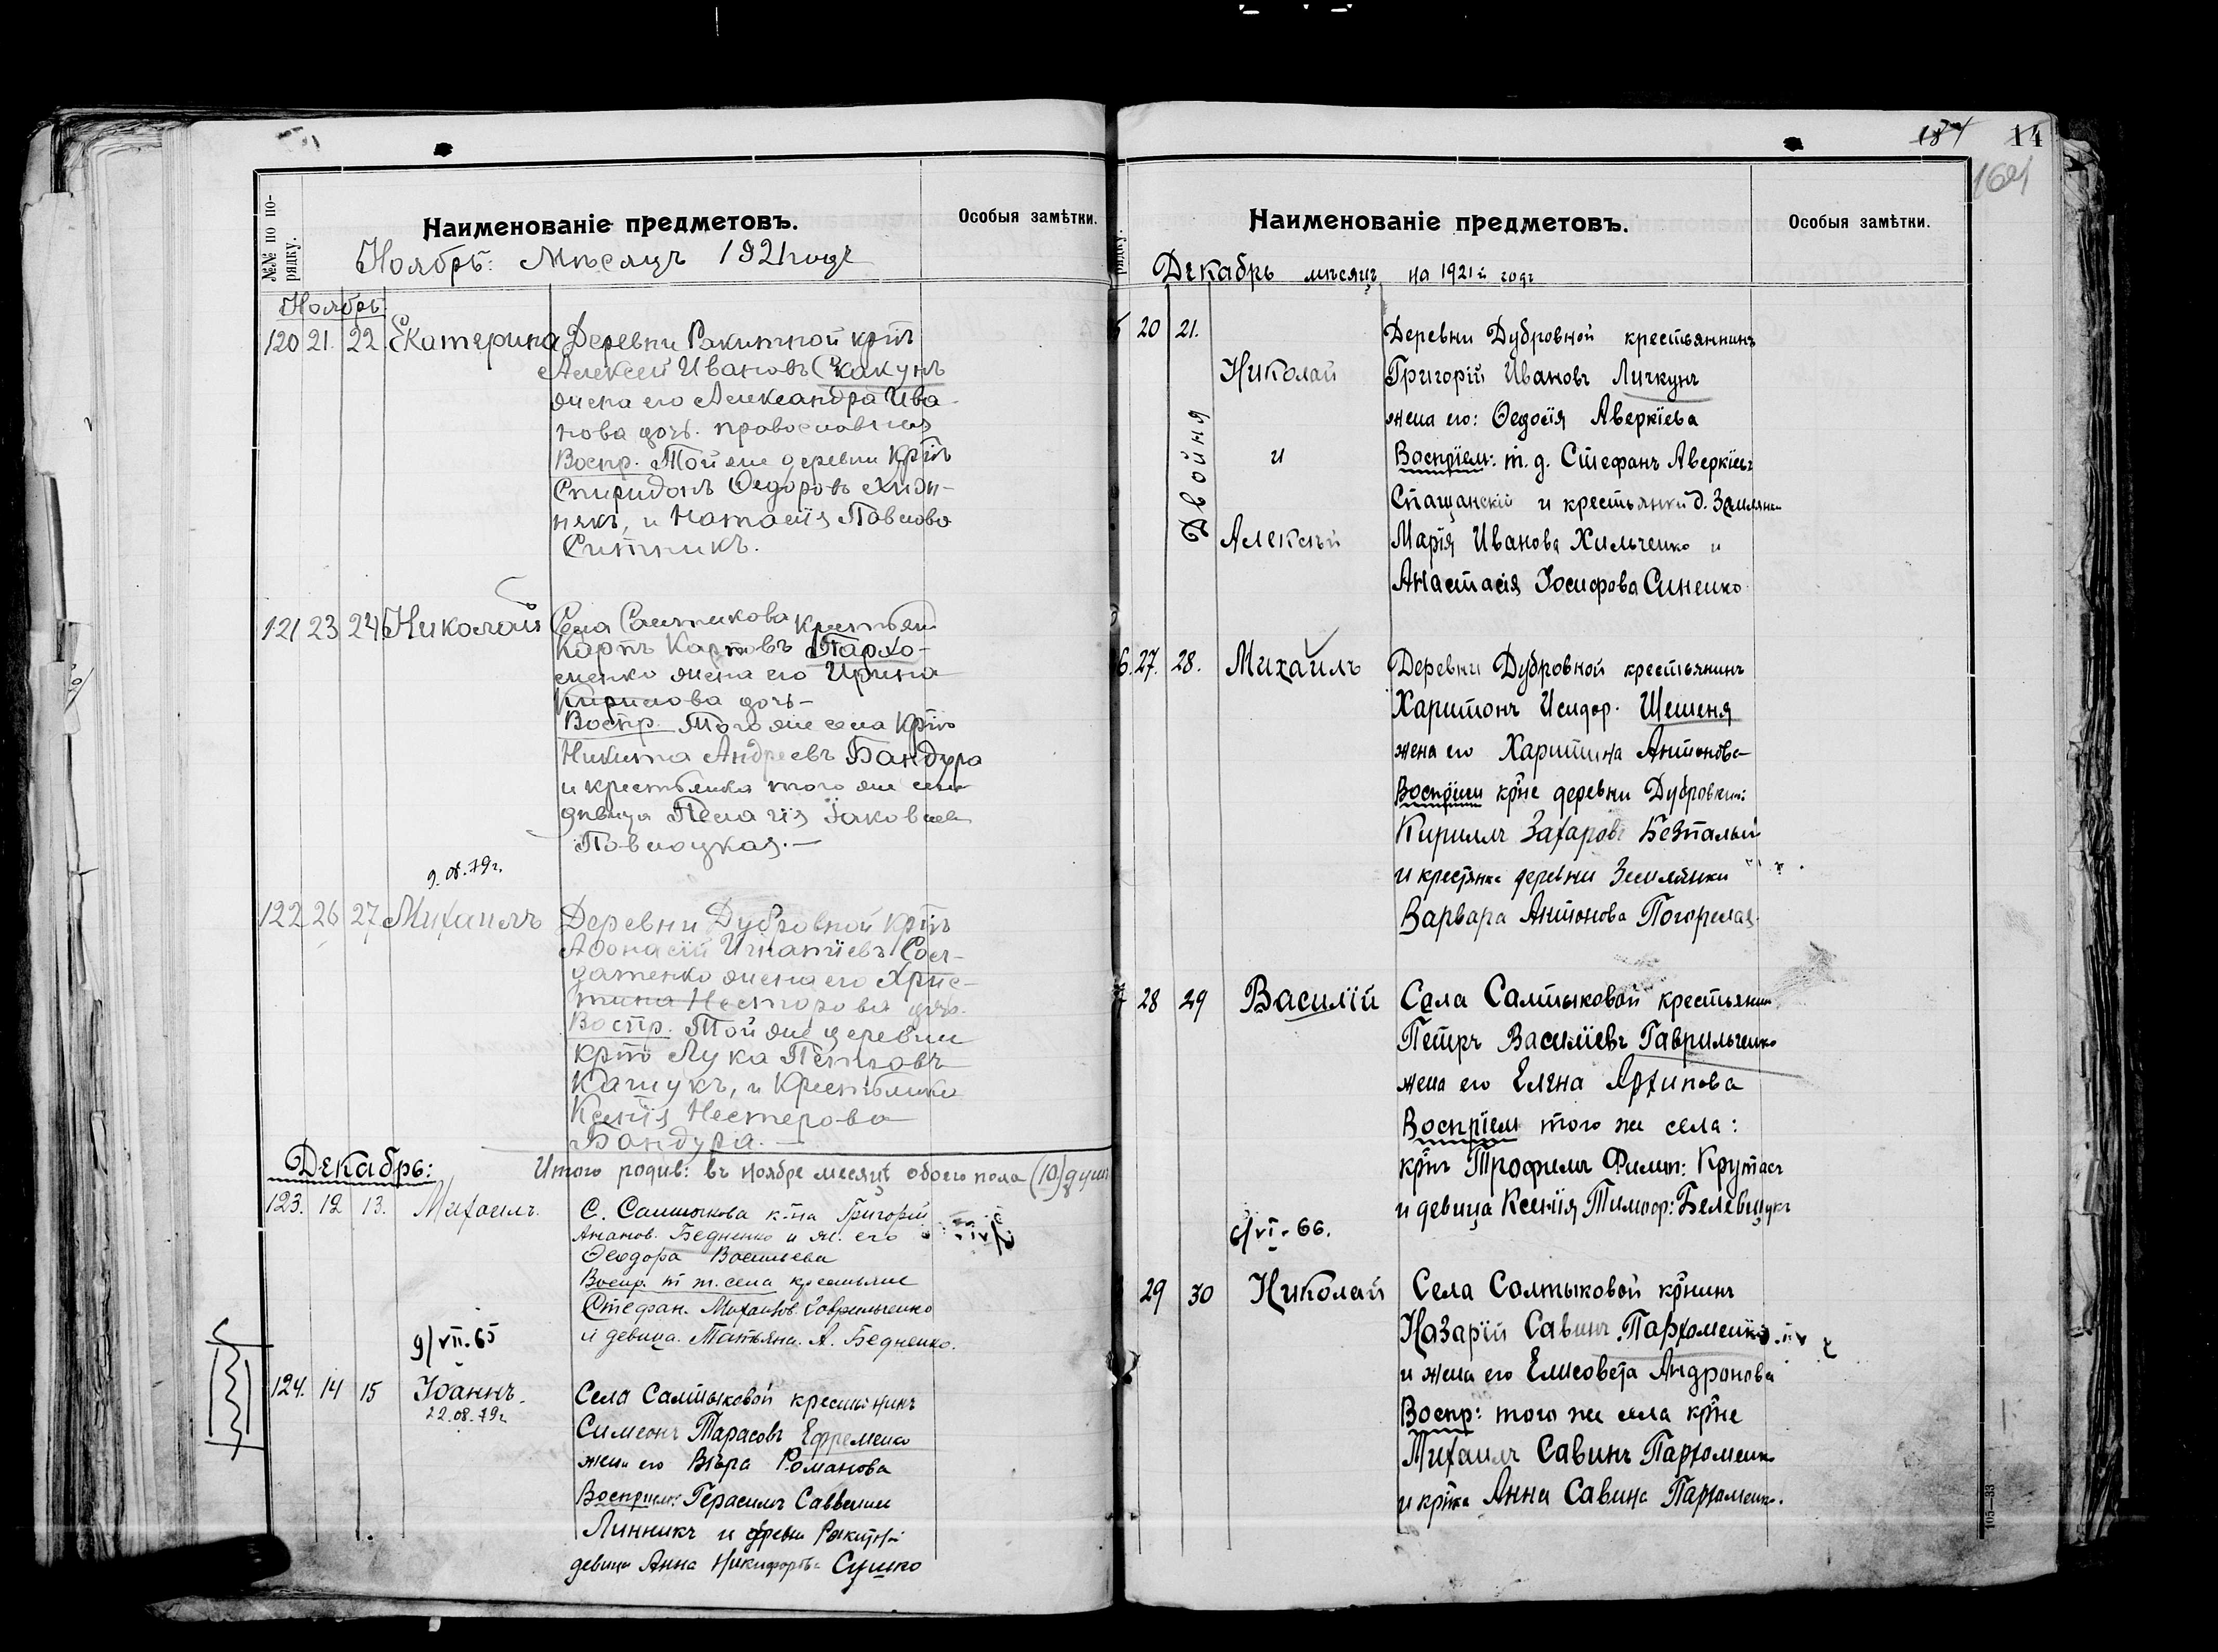 №№ по по-
рядку.
Наименованіе предметовъ.
Особыя замѣтки.
Ноябрь: Мѣсяцъ 1921 года
Ноябрь
120 21. 22 Екатерина Деревни Ракитной крнъ
Алексей Ивановъ
жена его Александра Ива-
нова дочь. православная
Воспр. Той же деревни крнъ
Спиридонъ Ѳедоровъ Хиж-
някъ, и Наталія Павлова
Ситникъ.
121 23 24 Николай Села Салтикова крестьян
Карпъ Карповъ Пархо-
менко жена его Ирина
Кирилова дочь-
Воспр. Того же села крнъ
Никита Андреевъ Бандура
и крестьянка того же села
дѣвица Пелагія Іаковлев
Павлоцкая.—
9.08.79г.
122 26 27 Михаилъ Деревни Дубровной крнъ
Афонасій Игнатіевъ Сол-
датенко жена его Хрис-
тина Несторова дочь.
Воспр. Той же деревни
крнъ Лука Петровъ
Кашукъ, и Крестьянка
Ксенія Нестерова
Бандура.—
Декабрь:
Итого родив: въ ноябре месяцѣ обоего пола (10) душъ
123. 12 13. Михаилъ. С. Салтыкова к-на Григорій
Анан��в. Бедненко и ж. его
Ѳеодора Васильева
Воспр. т ж. села крестьяне
Стефан. Михайлов. Гаврильченко
и девица. Татьяна. А. Бедненко.
9/VII.65
124. 14 15 Іоаннъ.
22.08.79г.
Села Салтыковой крестьянинъ
Симеонъ Тарасовъ Ефременко
жена его Вѣра Романова
Восприем: Герасимъ Саввинъ
Линникъ и деревни Ракитной
девица Анна Никифорова Сушко
187 14
164
рядку.
Наименованіе предметовъ.
Особыя замѣтки.
Декабрь мѣсяцъ на 1921й годъ
20 21. Деревни Дубровной крестьянинъ
Николай Григорій Ивановъ Личкунъ
жена его: Ѳедосія Аверкіева
Двойня
и Воспріем: т. д. Стефанъ Аверкіевъ
Стащанскій и крестьянки д. Землянки
Алексѣй Марія Иванова Хильченко и
Анастасія Іосифова Синенко
6. 27. 28. Михаилъ Деревни Дубровной крестьянинъ
Харитонъ Исидор. Шешеня
жена его Харитина Антонова
Воспріем крне деревни Дубровки:
Кириллъ Захаровъ Безпалый
и крестянка деревни Землянки
Варвара Антонова Погорелая.
28 29 Василій Села Салтыковой крестьянин
Петръ Василіевъ Гаврильченко
жена его Елена Архипова
Воспріем того же села:
крнъ Трофимъ Филип: Крутась
и девица Ксенія Тимофор: Белевщукъ
6/VI-66.
29 30 Николай Села Солтыковой крнинъ
Назарій Савинъ Пархоменко
и жена его Елисовета Андронова
Воспр: того же села крне
Михаилъ Савинъ Пархоменко
и крнка Анна Савина Пархоменко.
105—33